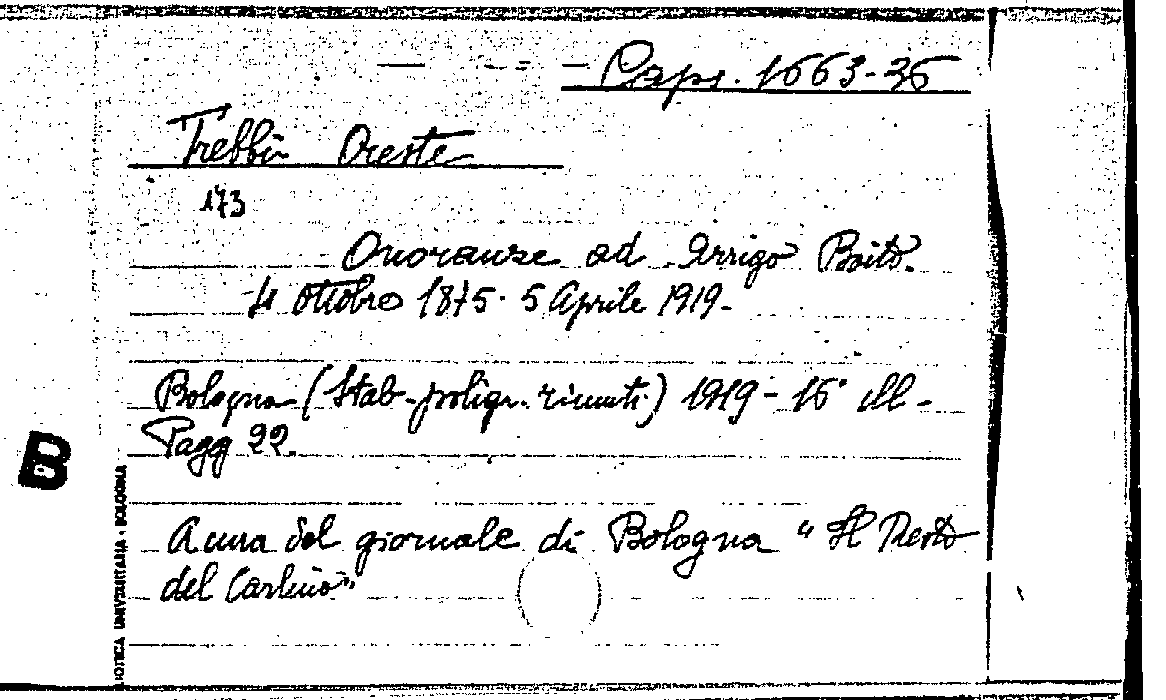 Caps. 1663-36
Trebbi Oreste
173
Onoranze ad Arrigo Boito.
4 ottobre 1875 - 5 Aprile 1919 -
Bologna (Stab. poligr. riuniti) 1919 - 16° ill -
Pagg 22.
A cura del giornale di Bologna "Il Resto
del Carlino"
B
IOTECA UNIVERSITARIA - BOLOGNA